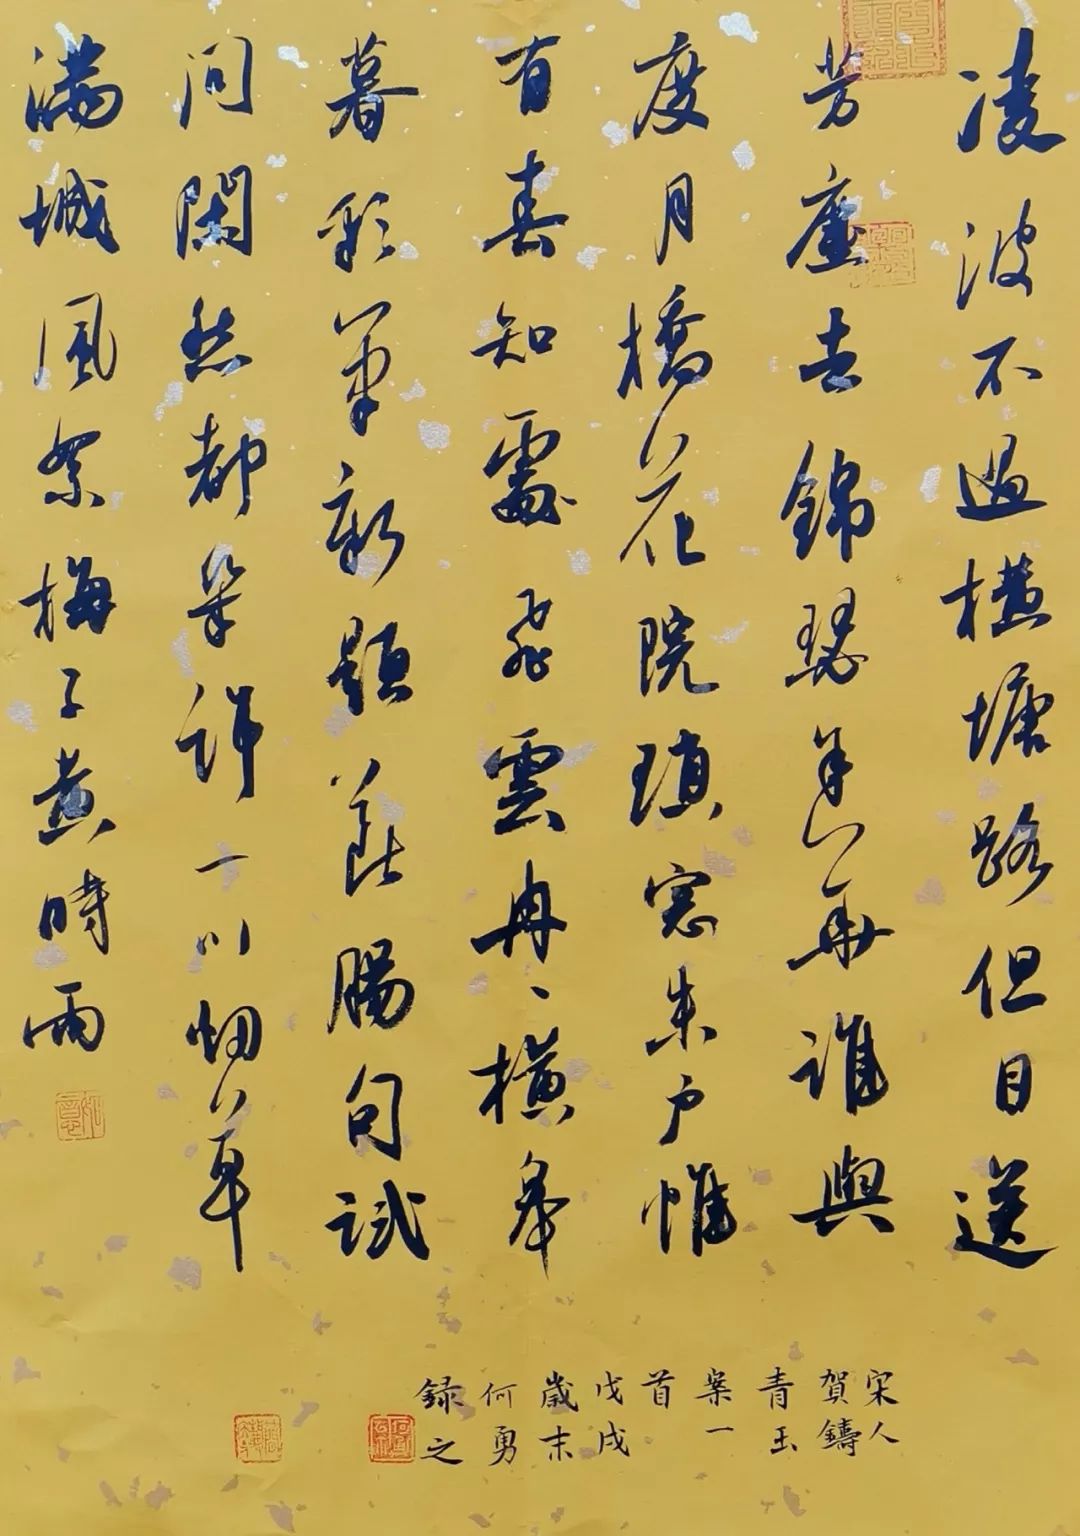 凌波不過橫塘路但目送
芳塵去錦瑟年華誰與
度月橋花院瑣窓朱戶惟
有春知處飛雲冉〻橫皋
暮彩筆新題斷腸句試
問閑愁都幾許一川烟草
滿城風絮梅子黃時雨
宋人
賀鑄
青玉
案一
首
戊戌
歲末
何勇
録之